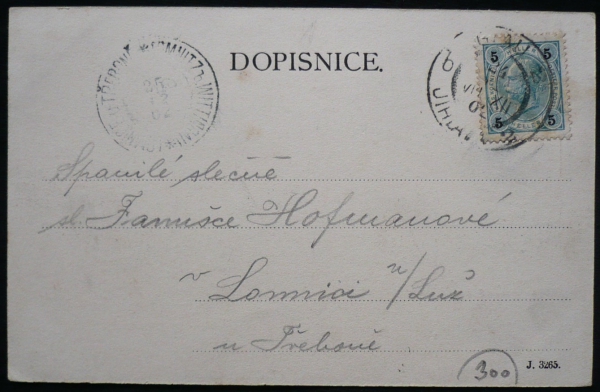 DOPISNICE.
5 5
5 5
JIHLAVA
Spanilé slečně
sl. Fanušce Hofmanové
v Lomnici n/Luž
u Třeboně
300
J. 3265.